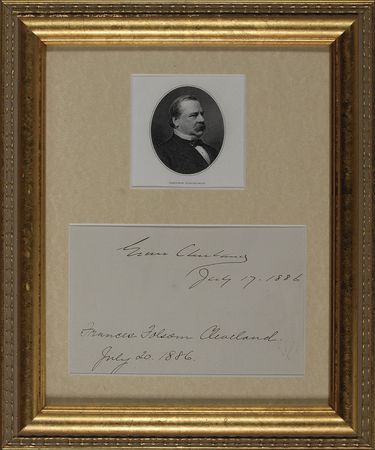 Grover Cleveland
July 17. 1886
Frances Folsom Cleveland.
July 20. 1886.